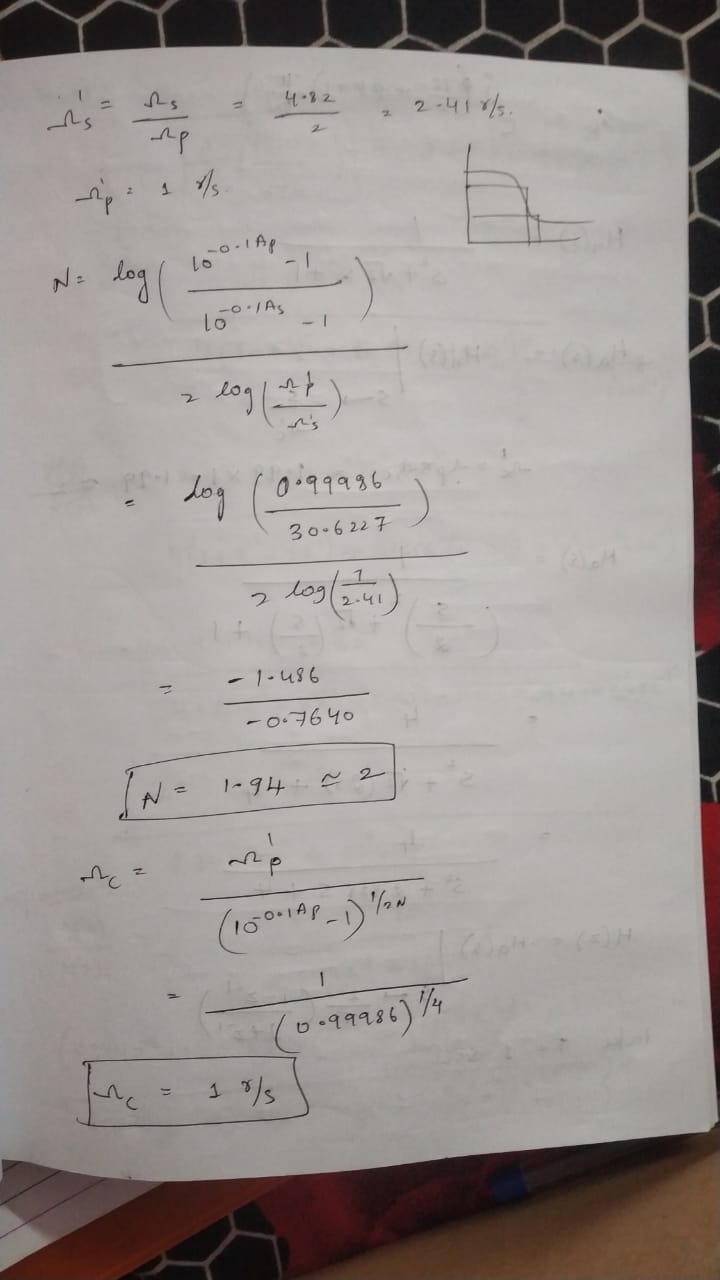 Ωs' = Ωs/Ωp = 4.82/2 = 2.41 r/s.
Ωp' = 1 r/s.
N = log((10^-0.1Ap - 1)/(10^-0.1As - 1)) / 2 log(Ωp'/Ωs')
= log(0.99986/30.6227) / 2 log(1/2.41)
= -1.486/-0.7640
N = 1.94 ≃ 2
Ωc = Ωp'/(10^-0.1Ap - 1)^1/2N
= 1/(0.99986)^1/4
Ωc = 1 r/s